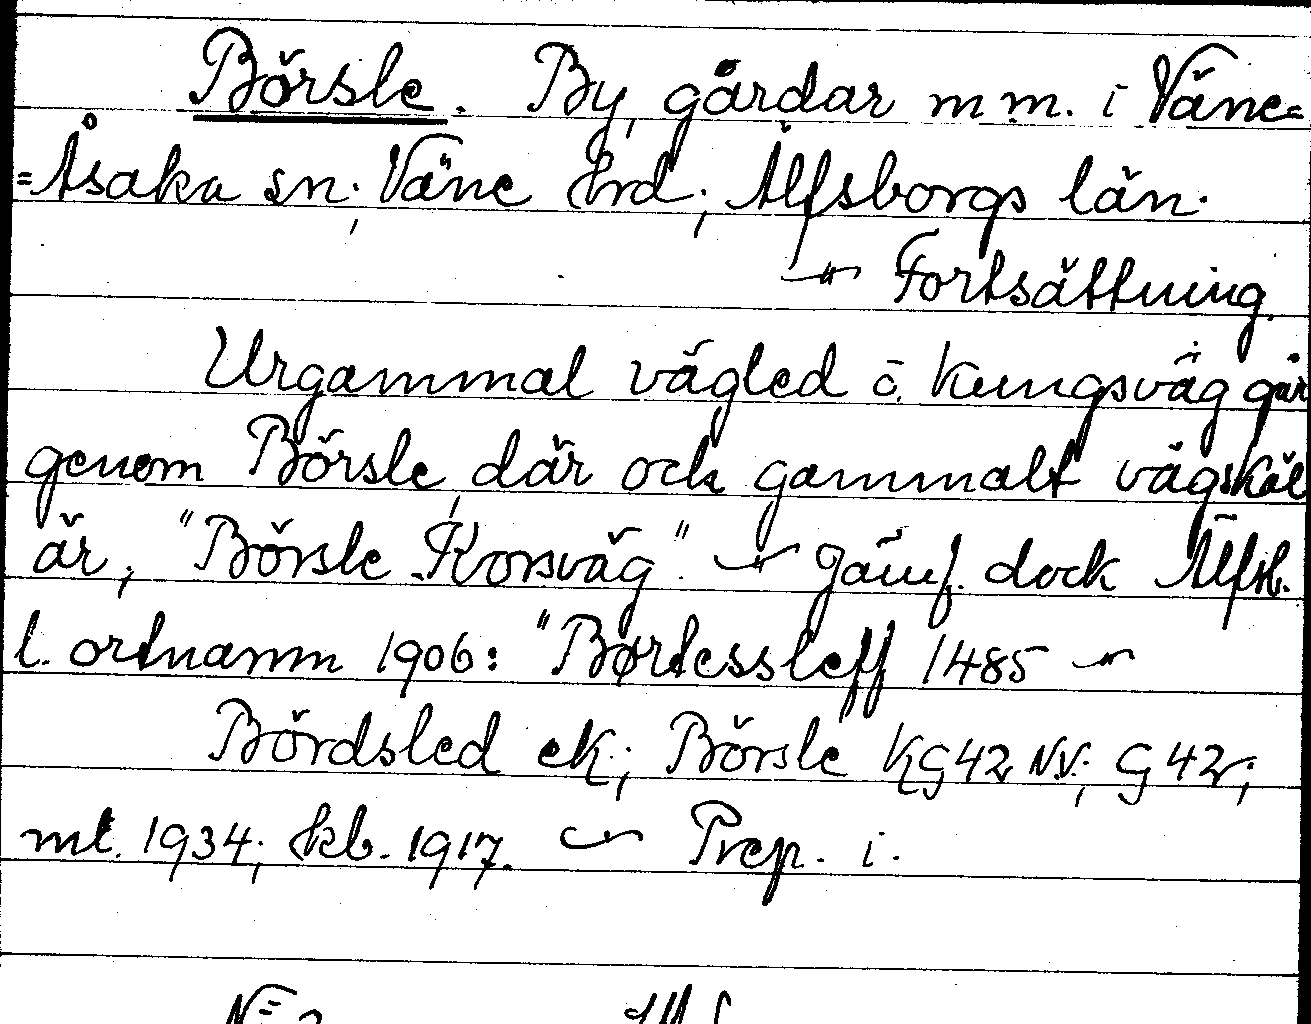 Börsle. By, gårdar m.m. i Väne=
=Åsaka sn; Väne Hrd; Älfsborgs län.
– " – Fortsättning.
Urgammal vägled o. Kungsväg går
genom Börsle, där ock gammalt vägskäl
är, "Börsle Korsväg". – " – Jämf. dock Älfsb.
l. ortnamn 1906: "Børdessleff 1485 – " –
Bördsled ek; Börsle KG42 NV; G 42;
ml. 1934; hkb. 1917. – " – Prep. i.